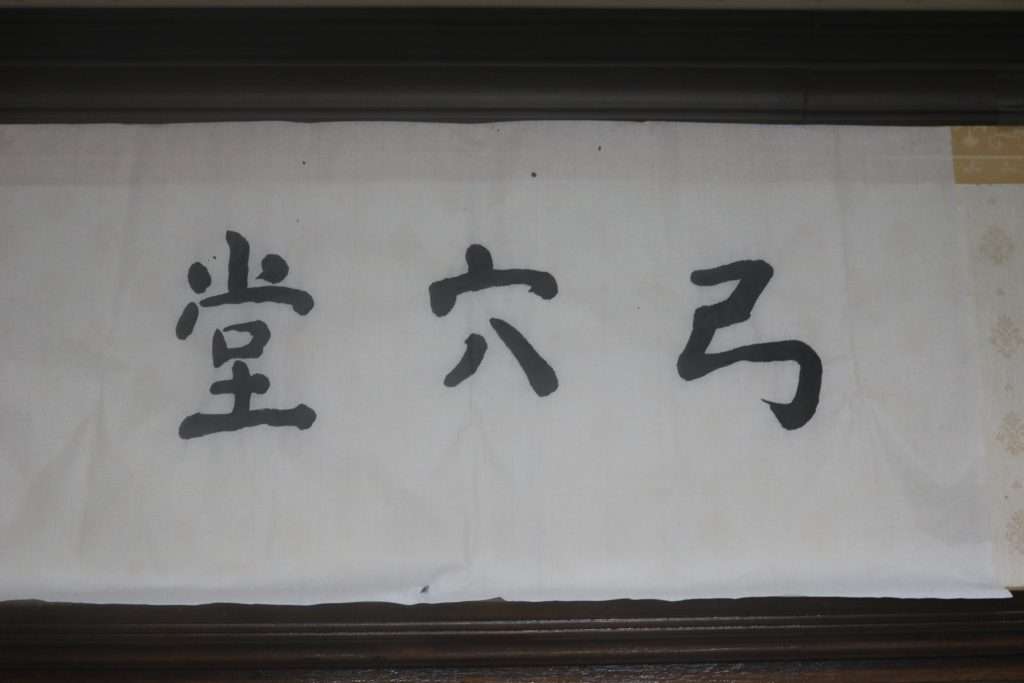 弓穴堂